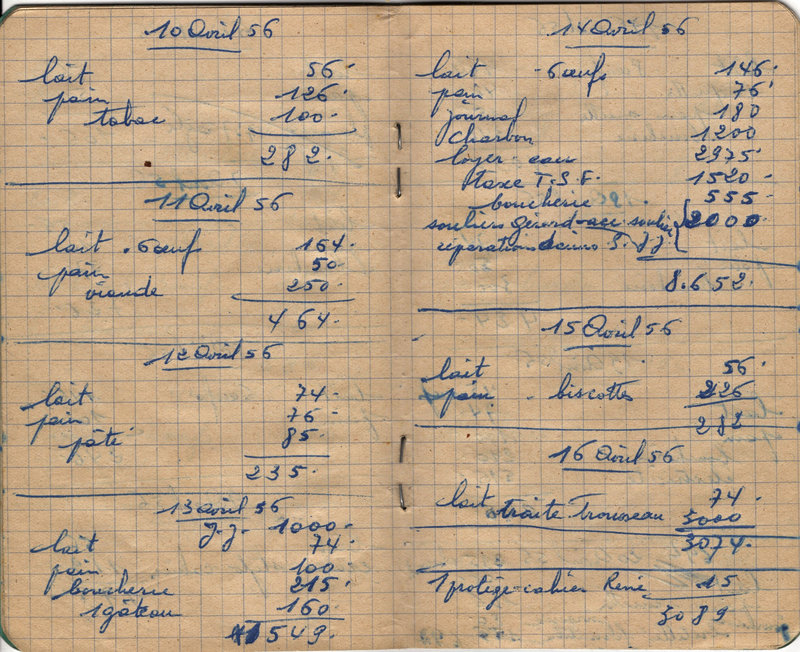 10 Avril 56
lait 56
pain 126
tabac 100
282
11 Avril 56
lait . 6 œuf 164
pain 50
viande 250
464
12 Avril 56
lait 74
pain 76
pâté 85
235
13 avril 56
J.J. 1000
lait 74
pain 100
boucherie 215
1 gâteau 160
1549
14 Avril 56
lait - 6 œufs 146
pain 76
journal 180
charbon 1200
loyer - eau 2975
taxe T.S.F. 1520
boucherie 555
souliers Gérard - souliers 2000
réparations J.J.
8.652
15 Avril 56
lait 56
pain - biscottes 226
282
16 Avril 56
lait 74
traite Trousseau 3000
3074
1 protège-cahier René 15
3089